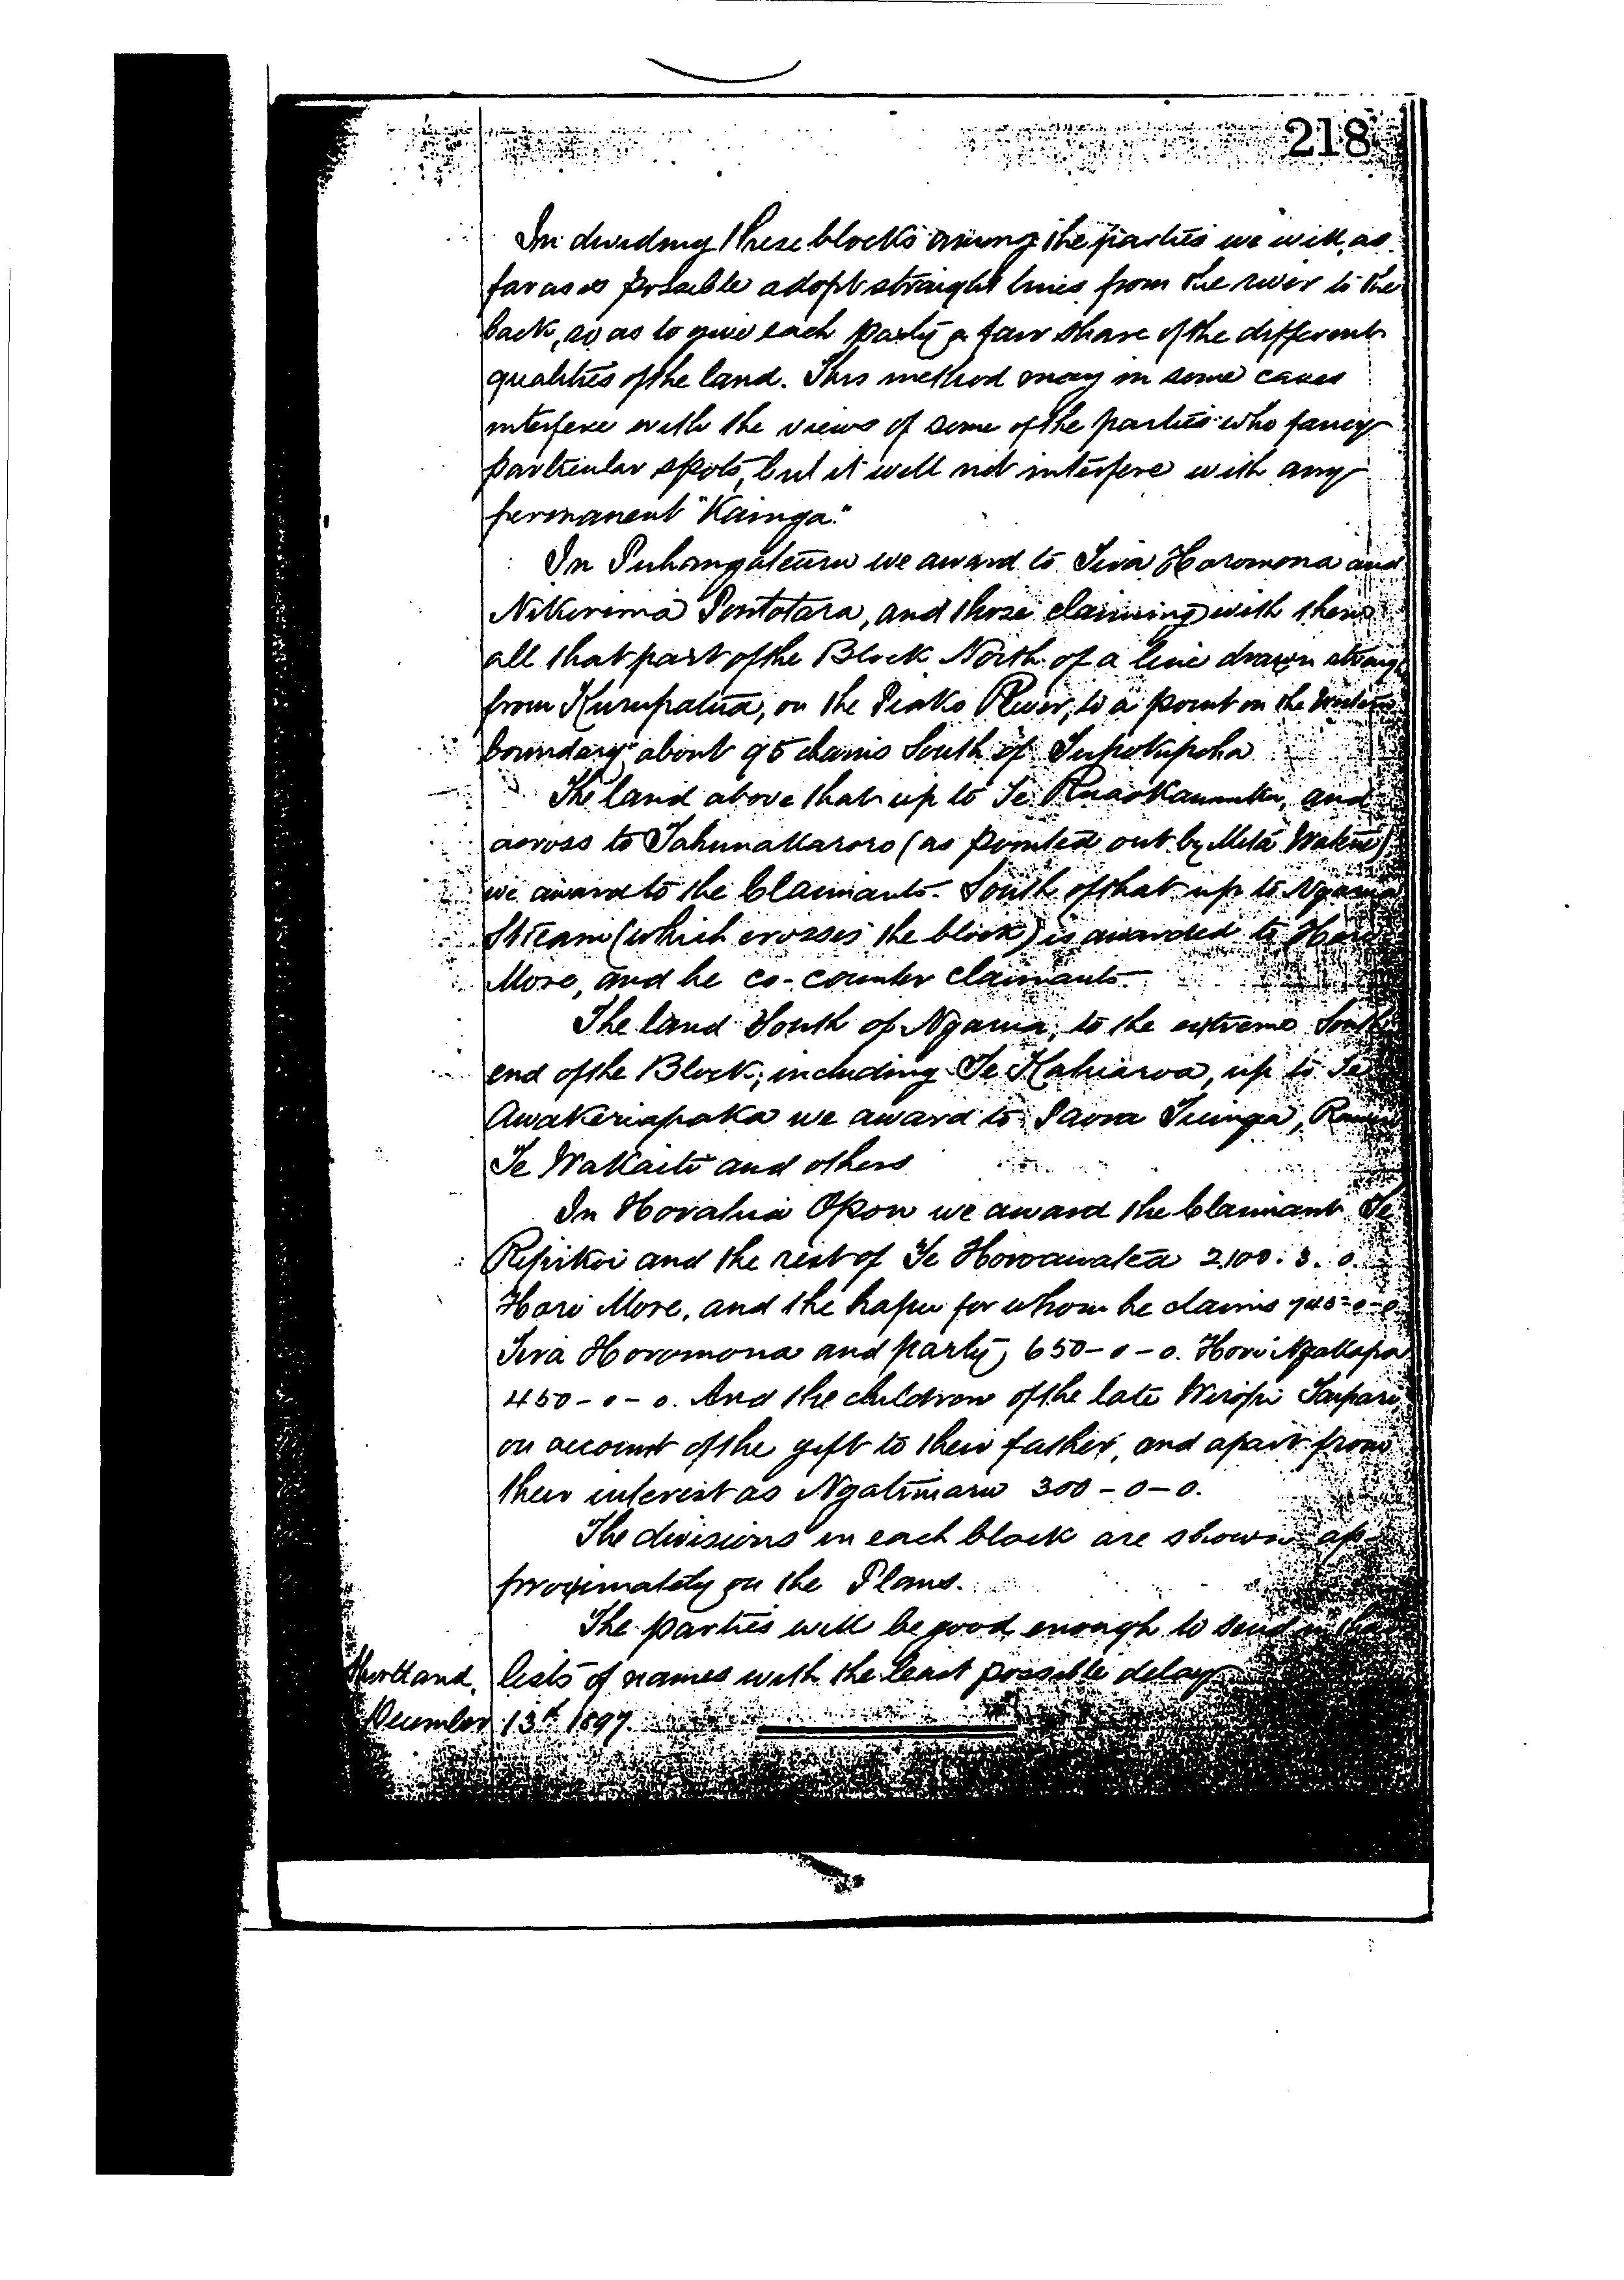 218
In dividing these blocks among the parties we will, as
far as is possible adopt straight lines from the river to the
back, so as to give each party a fair share of the different
qualities of the land. This method may in some cases
interfere with the views of some of the parties who fancy
particular spots, but it will not interfere with any
permanent "Kainga."
In Puhangateuru we award to Tiva Horomona and
Nikorima Poutotara, and those claiming with them
all that part of the Block North of a line drawn
from Kurupatua, on the Piako River, to a point on the Western
boundary about 95 chains South of Tupotupoha
The land above that up to Te and
across to (as pointed out by Meta
we award to the Claimants. South of that up to Ngarua
Stream (which crosses the block) is awarded to Hare
More, and he co-counter claimants.
The land South of Ngarua, to the extreme South
end of the Block; including Te Kahiaroa, up to Te
Awakeriapaka we award to Paora Tuinga,
Te Wakaiti and others
In Horahia Opou we award the Claimant Te
Ripikoi and the rest of Te Horoawatea 2,100. 3. 0.
Hari More, and the hapu for whom he claims
Tira Horomona and party, 650-0-0. Hori Ngakapa
450-0-0. And the children of the late Wiropi Taipari,
on account of the gift to their father, and apart from
their interest as Ngatimaru 300-0-0.
The divisions in each block are shown ap-
proximately on the Plans.
The parties will be good enough to send in their
Shortland, lists of names with the least possible delay
December 13th 1897.